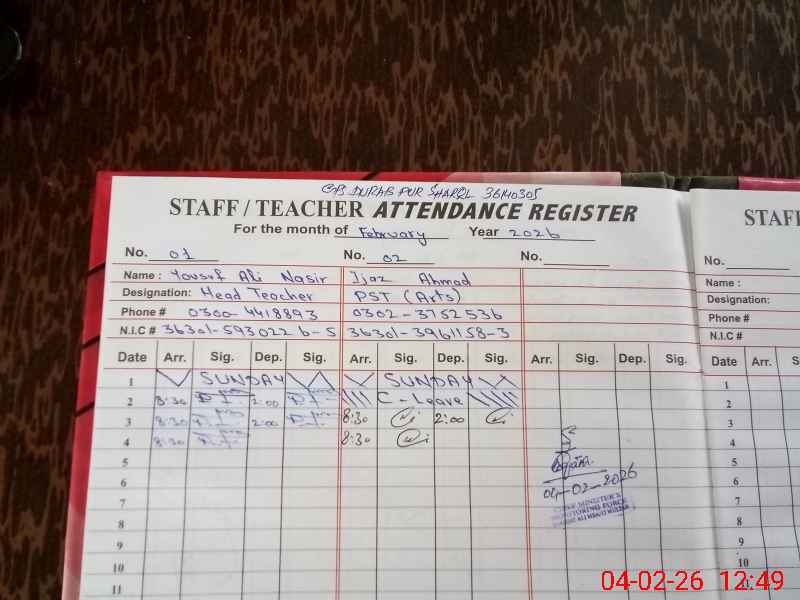 GPS DURAB PUR SHARQI 36140305
STAFF / TEACHER ATTENDANCE REGISTER STAFF
For the month of February Year 2026
No. 01 No. 02 No. No.
Name : Yousuf Ali Nasir Ijaz Ahmad Name :
Designation: Head Teacher PST (Arts) Designation:
Phone # 0300-4418893 0302-3752536 Phone #
N.I.C # 36301-5930226-5 36301-3961158-3 N.I.C #
Date Arr. Sig. Dep. Sig. Arr. Sig. Dep. Sig. Arr. Sig. Dep. Sig. Date Arr. S
1 SUNDAY SUNDAY 1
2 8:30 2:00 C-Leave 2
3 8:30 2:00 8:30 2:00 3
4 8:30 8:30 4
5 5
6 04-02-2026 6
7 CHIEF MINISTER'S 7
MONITORING FORCE
8 8
9 9
10 10
11 11
04-02-26 12:49